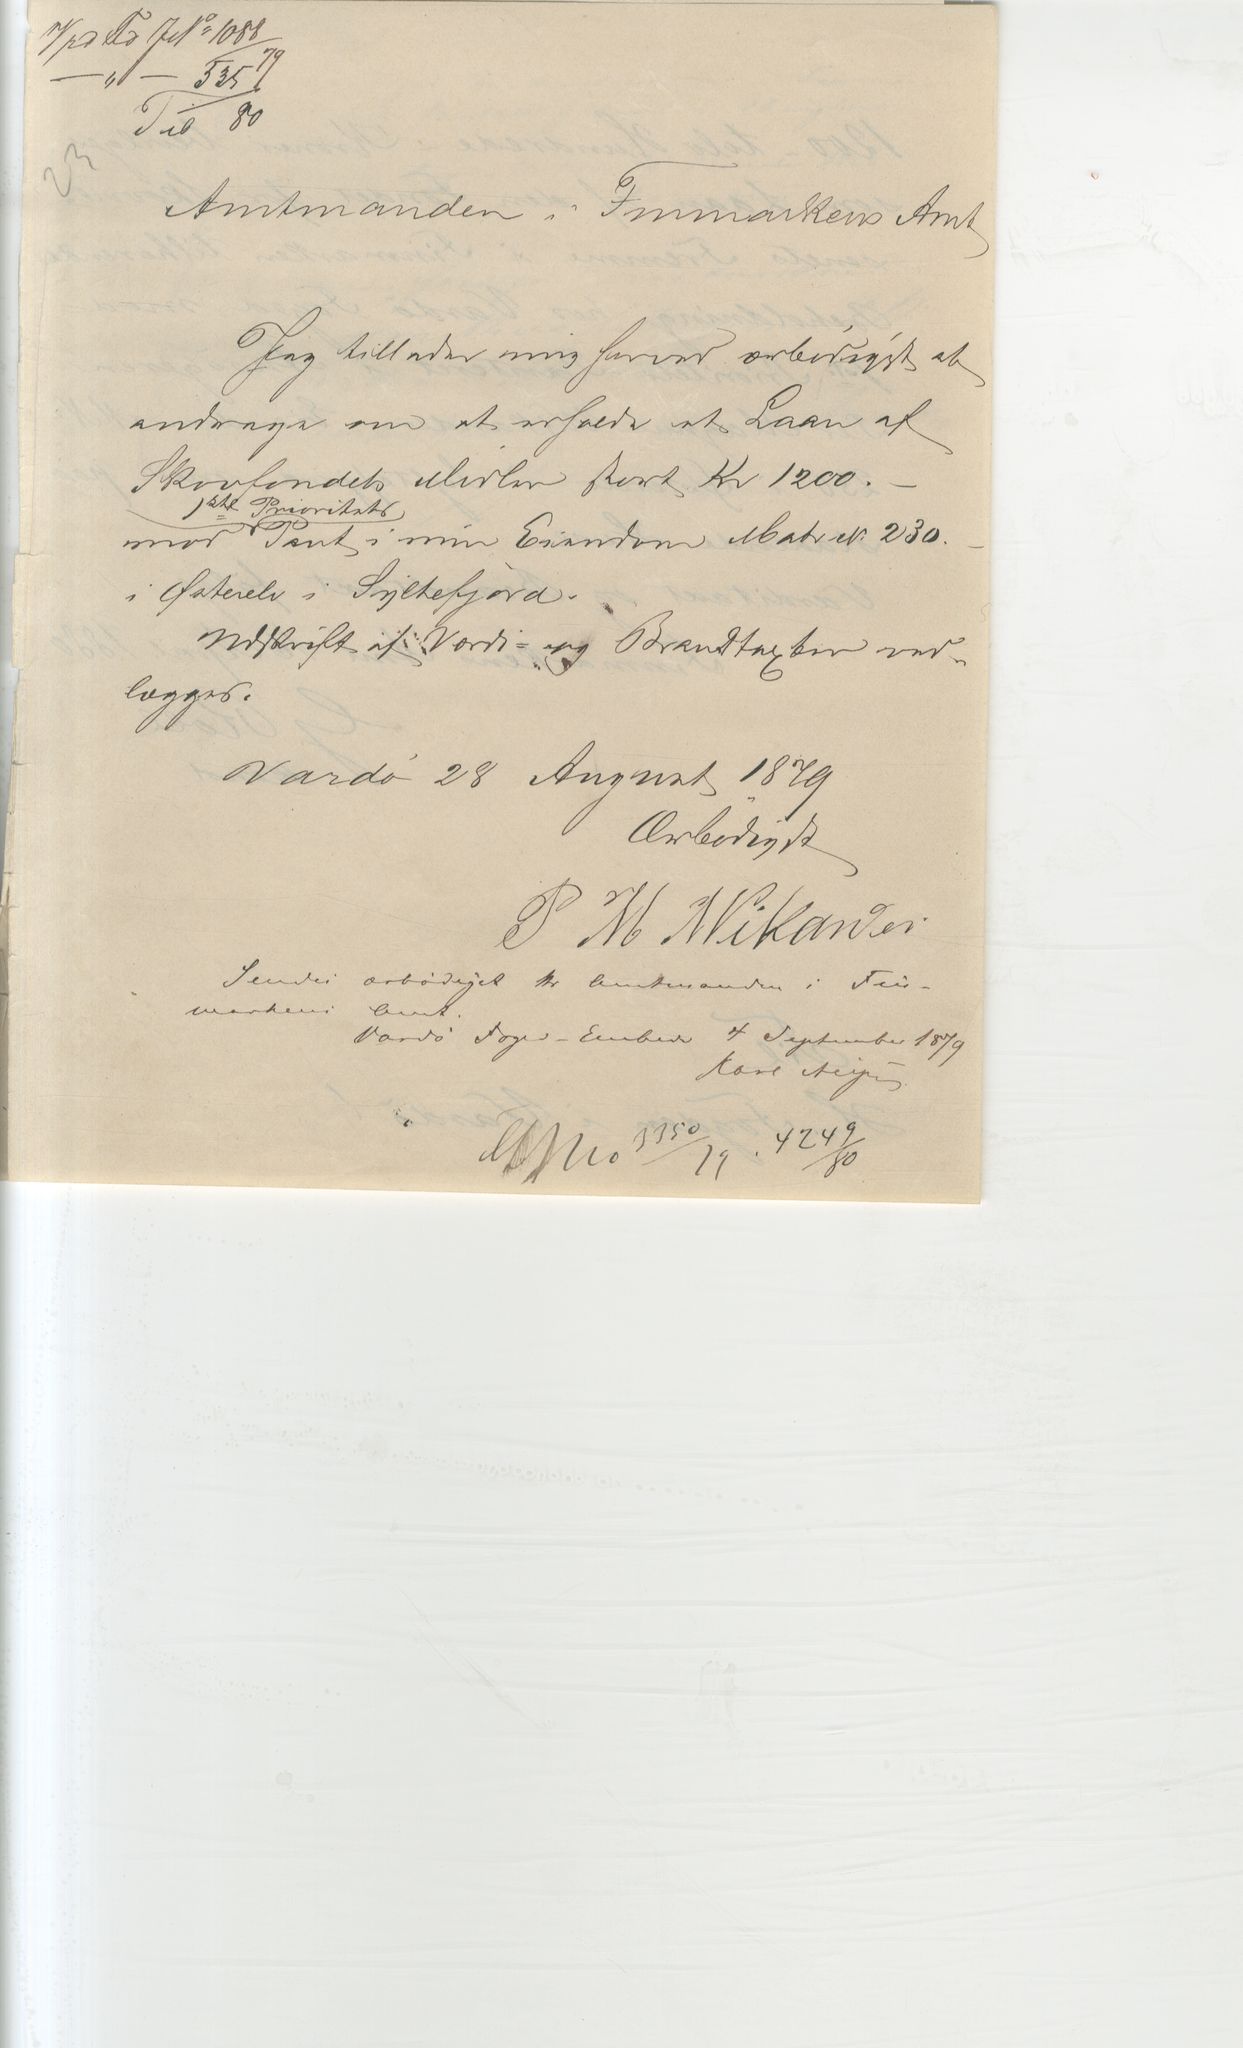 Jr No 1088
79
— " — 535
Til 80
23
Amtmanden i Finmarkens Amt
Jeg tillader mig herved ærbødigst at
andrage om at erholde et Laan af
Skovfondets Midler stort Kr 1200. —
1ste Prioritets
mod Pant i min Eiendom Matr N. 230. —
i Østerelv i Syltefjord.
Udskrift af Værdi- og Brandtaxten ved-
lægges.
Vardö 28 August 1879
Ærbødigst
P M Nikander
Sendes ærbødigst Hr Amtmanden i Fin-
markens Amt.
Vardö Foged-Embede 4 September 1879
Karl
3350/79 . 4249/80